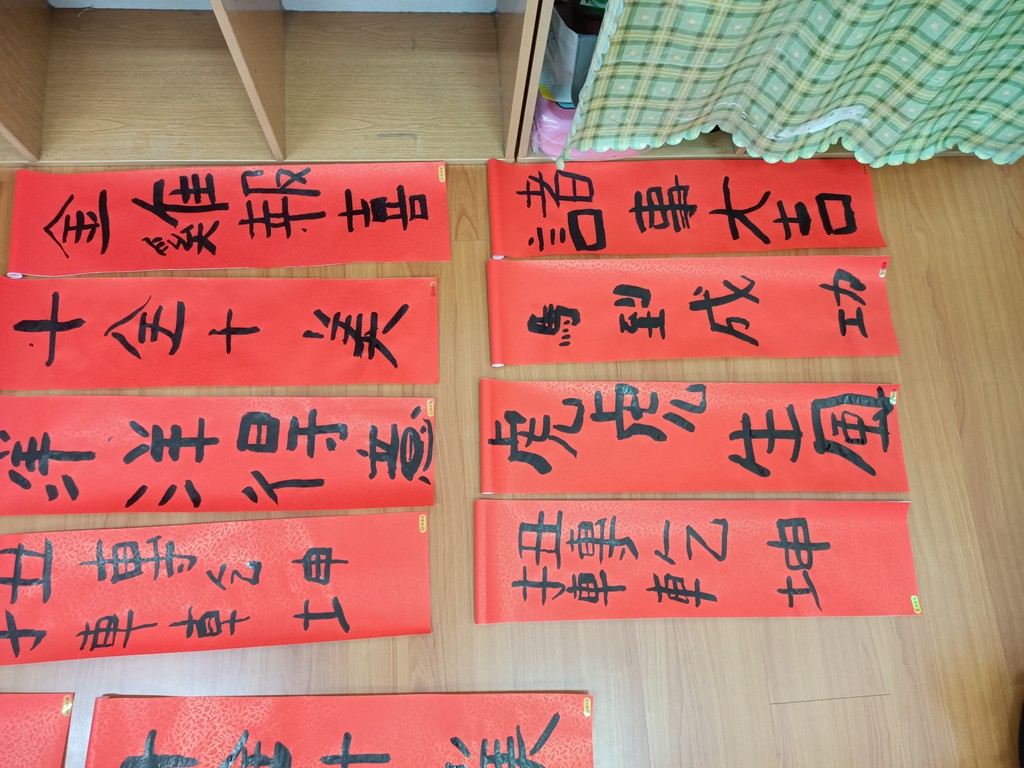 金雞報喜
諸事大吉
十全十美
馬到成功
洋洋得意
虎虎生風
扭轉乾坤
扭轉乾坤
十 十美